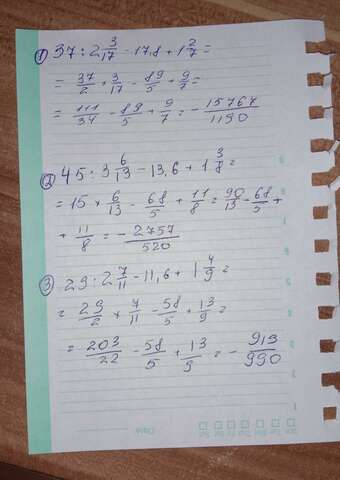 ① 37 : 2 3/17 - 17,8 + 1 2/7 =
= 37/2 × 3/17 - 89/5 + 9/7 =
= 111/34 - 89/5 + 9/7 = - 15767/1190
② 45 : 3 6/13 - 13,6 + 1 3/8 =
= 15 × 6/13 - 68/5 + 11/8 = 90/13 - 68/5 +
+ 11/8 = - 2757/520
③ 29 : 2 7/11 - 11,6 + 1 4/9 =
= 29/2 × 7/11 - 58/5 + 13/9 =
= 203/22 - 58/5 + 13/9 = - 913/990
Date